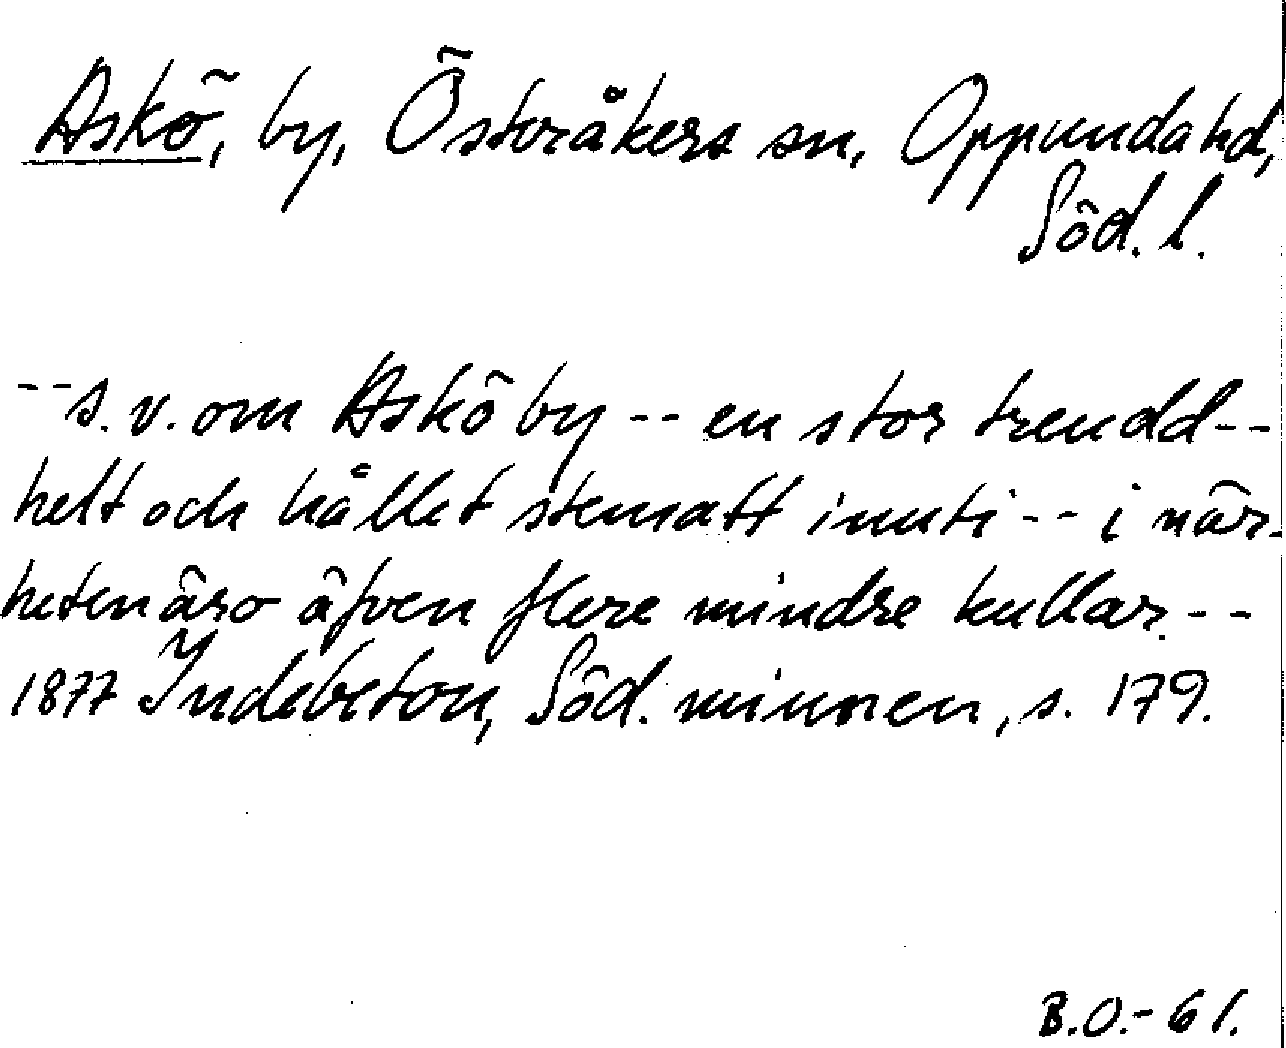 Askö, by, Österåkers sn, Oppunda hd,
Söd. l.
-- s. v. om Askö by -- en stor trendd --
helt och hållet stensatt inuti -- i när-
heten äro äfven flere mindre kullar. --
1877 Indebetou, Söd. minnen, s. 179.
B.O.-61.